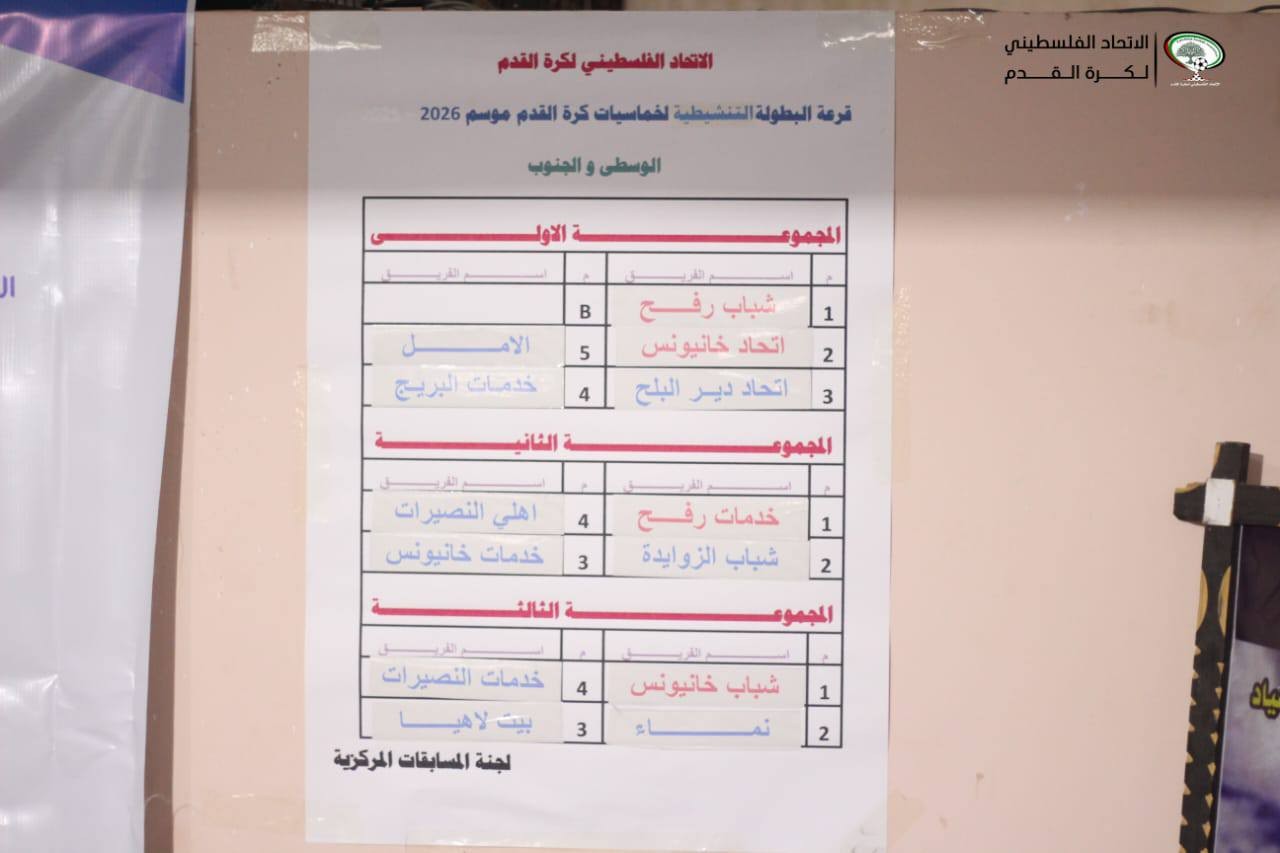 الاتحاد الفلسطيني
لكرة القدم
الاتحاد الفلسطيني لكرة القدم
قرعة البطولة التنشيطية لخماسيات كرة القدم موسم 2026
الوسطى و الجنوب
المجموعة الاولى
م اسم الفريق م اسم الفريق
1 شباب رفح B
2 اتحاد خانيونس 5 الامل
3 اتحاد دير البلح 4 خدمات البريج
المجموعة الثانية
م اسم الفريق م اسم الفريق
1 خدمات رفح 4 اهلي النصيرات
2 شباب الزوايدة 3 خدمات خانيونس
المجموعة الثالثة
م اسم الفريق م اسم الفريق
1 شباب خانيونس 4 خدمات النصيرات
2 نماء 3 بيت لاهيا
لجنة المسابقات المركزية